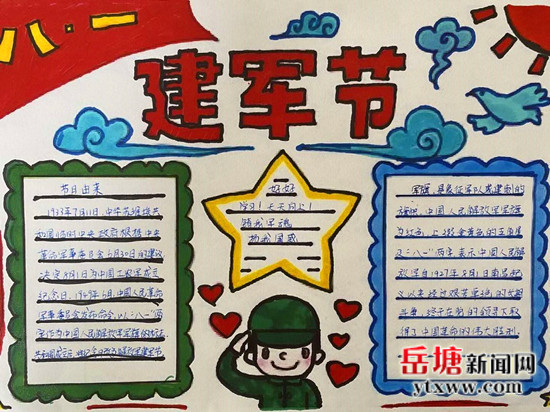 八·一
建军节
节日由来
1933年7月11日中华苏维埃共
和国临时中央政府根据中央
革命军事委员会6月30日的建议
决定8月1日为中国工农红军成立
纪念日。1949年6月,中国人民革命
军事委员会发布命令,以"八一"两
字作为中国人民解放军军旗的标志
好好
学习!天天向上!
铸我军魂
扬我国威
军旗 是象征军队或建制的
旗帜,中国人民解放军军旗
为红底,上缀金黄色的五角星
及"八一"两字,表示中国人民解
放军自1927年8月1日南昌起
义以来经过艰苦卓绝的长期
斗争,
得了中国革命的伟大胜利
岳塘新闻网
ytxww.com